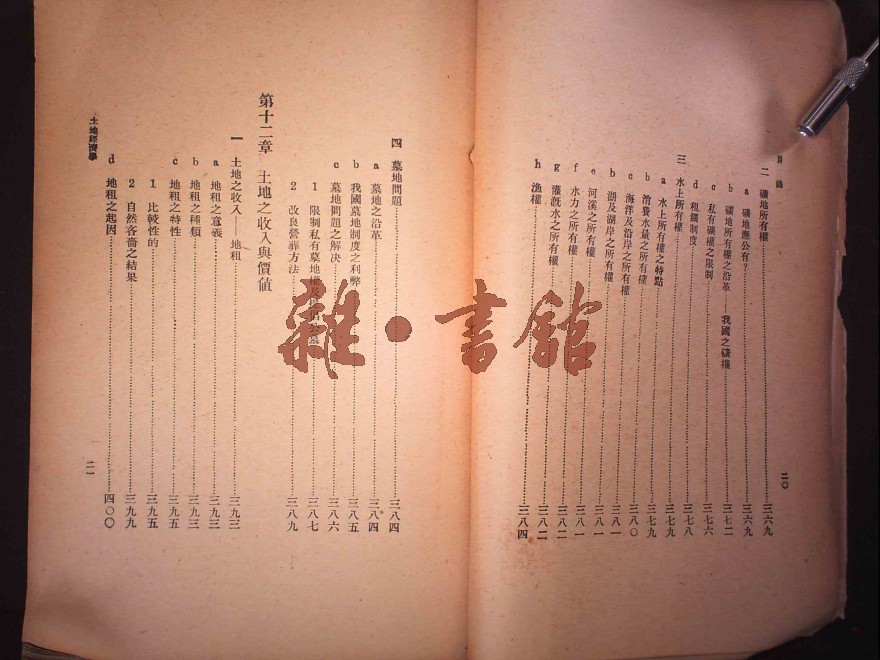 目錄
二 礦地所有權 三六九
a 礦地應公有？ 三六九
b 礦地所有權之沿革——我國之礦權 三七二
c 私有礦權之限制 三七六
d 租鑛制度 三七八
三 水上所有權 三七九
a 水上所有權之特點
b 消費水量之所有權 三七九
c 海洋及沿岸之所有權 三八〇
b 湖及湖岸之所有權 三八一
e 河溪之所有權 三八一
f 水力之所有權 三八一
g 灌溉水之所有權 三八二
h 漁權 三八四
二〇
四 墓地問題 三八四
a 墓地之沿革 三八四
b 我國墓地制度之利弊 三八五
c 墓地問題之解決 三八六
1 限制私有墓地權及 三八七
2 改良營葬方法 三八九
第十二章 土地之收入與價值
一 土地之收入——地租 三九三
a 地租之意義 三九三
b 地租之種類 三九三
c 地租之特性 三九五
1 比較性的 三九五
2 自然吝嗇之結果 三九九
d 地租之起因 四〇〇
土地經濟學
二一
雜·書館